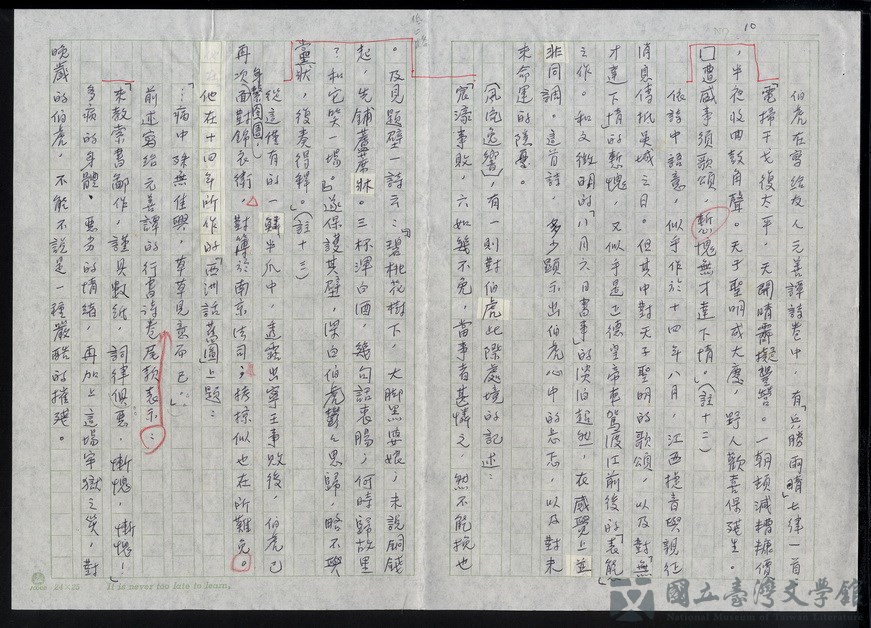 10
伯虎在寫給友人元善譚詩卷中，有「兵勝雨晴」七律一首
「電掃干戈復太平，天開晴霽擬豐登。一朝頓減糟糠價
，半夜收回鼓角聲。天子聖明成大慶，野人歡喜保殘生。
□遭盛事須歌頌，慙愧無才達下情。」(註十二)
依詩中語意，似乎作於十四年八月，江西捷音與親征
消息傳抵吳城之日。但其中對天子聖明的歌頌，以及對「無
才達下情」的慙愧，又似乎是正德皇帝車駕渡江前後的「表態」
之作。和文徵明的「八月六日書事」的淡泊超然，在感覺上並
非同調。這首詩，多少顯示出伯虎心中的忐忑，以及對未
來命運的隱憂。
「風流逸響」，有一則對伯虎此際處境的記述：
「宸濠事敗，六如幾不免，當事者甚憐之，然不能挽也
。及見題壁一詩云：『碧桃花樹下，大脚黑婆娘；未說銅錢
起，先鋪蘆蓆牀。三杯渾白酒，幾句話衷腸；何時歸故里
？和它笑一場。』遂保護其壁，俾白伯虎鬱鬱思歸，略不與
黨狀，後奏得釋。」(註十三)
從這僅有的一鱗半爪中，透露出寧王事敗後，伯虎已
身繫囹圄，
再次面對錦衣衛，對簿於南京法司；拷掠似也在所難免。
他在十四年所作的「西洲話舊圖」上題：
「…病中殊無佳興，草草見意而已。」
前述寫給元善譚的行書詩卷尾款表示：
「來教索書鄙作，謹具數紙，詞律俱惡，慚愧，慚愧！」
多病的身體，惡劣的情緒，再加上這場牢獄之災，對
晚歲的伯虎，不能不說是一種嚴酷的摧殘。
24×25
It is never too late to learn.
國立臺灣文學館
National Museum of Taiwan Literature